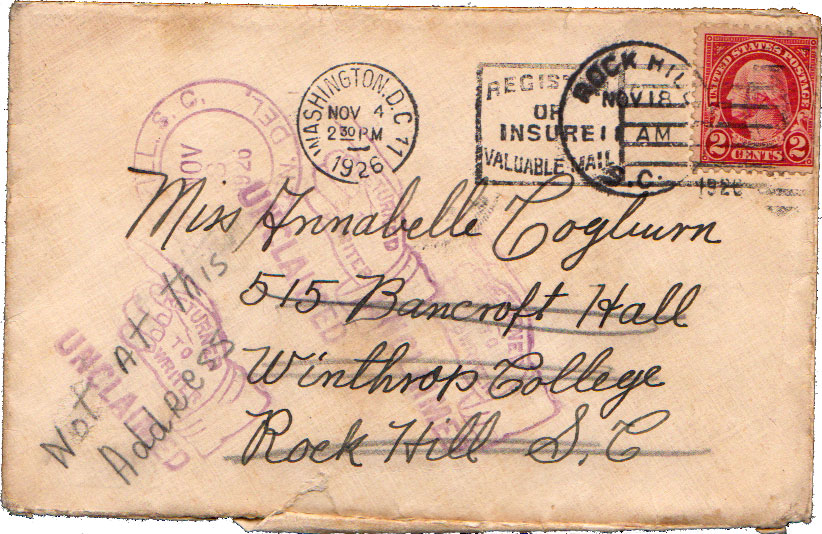 WASHINGTON, D.C. 11
NOV 4
2 30 PM
1926
REGIST
OF
INSURE
VALUABLE MAIL
ROCK HIL
NOV 18
AM
S.C.
1926
UNITED STATES POSTAGE
2 CENTS 2
L S. C.
DEL.
NOV
Miss Annabelle Cogburn
515 Bancroft Hall
Winthrop College
Rock Hill S, C
Not At this
Address
RETURNED
TO
WRITER
UNCLAIMED
RETURNED
WRITER
UNCLAIMED